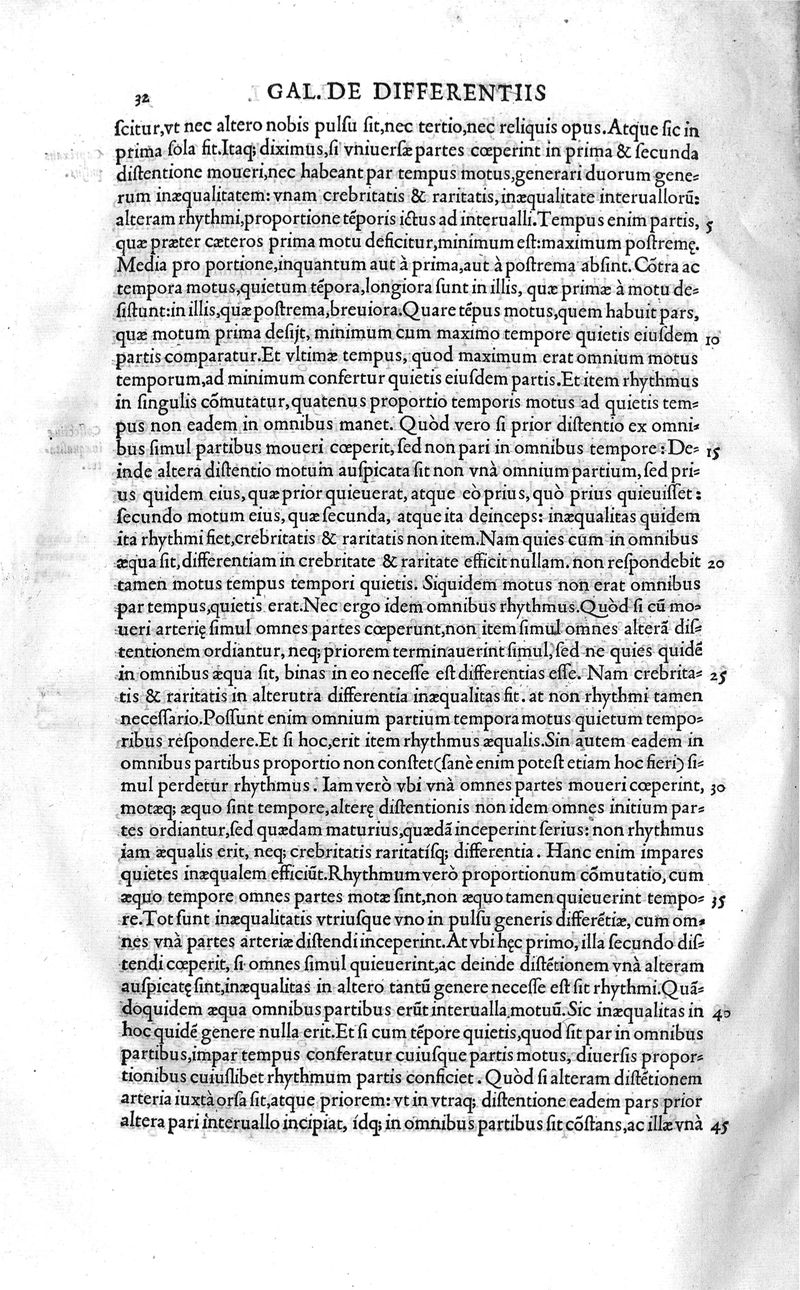 32 GAL. DE DIFFERENTIIS
ſcitur,vt nec altero nobis pulſu ſit,nec tertio,nec reliquis opus.Atque ſic in
prima ſola fit.Itaq; diximus,ſi vniuerſæ partes cœperint in prima & ſecunda
diſtentione moueri,nec habeant par tempus motus,generari duorum gene⸗
rum inæqualitatem: vnam crebritatis & raritatis,inæqualitate interualloru᷃:
alteram rhythmi,proportione te᷃poris ictus ad interualli.Tempus enim partis, 5
quæ præter cæteros prima motu deficitur,minimum eſt:maximum poſtremę.
Media pro portione,inquantum aut à prima,aut à poſtrema abſint. Cõtra ac
tempora motus,quietum te᷃pora,longiora ſunt in illis, quæ primæ à motu de⸗
ſiſtunt:in illis,quæ poſtrema,breuiora.Quare te᷃pus motus,quem habuit pars,
quæ motum prima deſijt, minimum cum maximo tempore quietis eiuſdem 10
partis comparatur.Et vltimæ tempus, quod maximum erat omnium motus
temporum,ad minimum confertur quietis eiuſdem partis.Et item rhythmus
in ſingulis cõmutatur,quatenus proportio temporis motus ad quietis tem⸗
pus non eadem in omnibus manet. Quòd vero ſi prior diſtentio ex omni⸗
bus ſimul partibus moueri cœperit, ſed non pari in omnibus tempore : De⸗ 15
inde altera diſtentio motum auſpicata ſit non vnà omnium partium, ſed pri⸗
us quidem eius, quæ prior quieuerat, atque eò prius, quò prius quieuiſſet :
ſecundo motum eius, quæ ſecunda, atque ita deinceps: inæqualitas quidem
ita rhythmi fiet,crebritatis & raritatis non item.Nam quies cum in omnibus
æqua ſit,differentiam in crebritate & raritate efficit nullam. non reſpondebit 20
tamen motus tempus tempori quietis. Siquidem motus non erat omnibus
par tempus,quietis erat.Nec ergo idem omnibus rhythmus.Quòd ſi cu᷃ mo⸗
ueri arterię ſimul omnes partes cœperunt,non item ſimul omnes alterã diſ⸗
tentionem ordiantur, neq; priorem terminauerint ſimul, ſed ne quies quide᷃
in omnibus æqua ſit, binas in eo neceſſe eſt differentias eſſe. Nam crebrita⸗ 25
tis & raritatis in alterutra differentia inæqualitas fit . at non rhythmi tamen
neceſſario.Poſſunt enim omnium partium tempora motus quietum tempo⸗
ribus reſpondere.Et ſi hoc,erit item rhythmus æqualis.Sin autem eadem in
omnibus partibus proportio non conſtet(ſanè enim poteſt etiam hoc fieri) ſi⸗
mul perdetur rhythmus . Iam verò vbi vnà omnes partes moueri cœperint, 30
motæq; æquo ſint tempore,alterę diſtentionis non idem omnes initium par⸗
tes ordiantur,ſed quædam maturius,quædã inceperint ſerius: non rhythmus
iam æqualis erit, neq; crebritatis raritatíſq; differentia . Hanc enim impares
quietes inæqualem efficiu᷃t.Rhythmum verò proportionum cõmutatio, cum
æquo tempore omnes partes motæ ſint,non æquo tamen quieuerint tempo⸗ 35
re.Tot ſunt inæqualitatis vtriuſque vno in pulſu generis differe᷃tiæ, cum om⸗
nes vnà partes arteriæ diſtendi inceperint.At vbi hęc primo, illa ſecundo diſ⸗
tendi cœperit, ſi omnes ſimul quieuerint,ac deinde diſte᷃tionem vnà alteram
auſpicatę ſint,inæqualitas in altero tantu᷃ genere neceſſe eſt ſit rhythmi.Quã⸗
doquidem æqua omnibus partibus eru᷃t interualla motuu᷃.Sic inæqualitas in 40
hoc quide᷃ genere nulla erit.Et ſi cum te᷃pore quietis,quod ſit par in omnibus
partibus,impar tempus conferatur cuiuſque partis motus, diuerſis propor⸗
tionibus cuiuſlibet rhythmum partis conficiet . Quòd ſi alteram diſte᷃tionem
arteria iuxtà orſa ſit,atque priorem: vt in vtraq; diſtentione eadem pars prior
altera pari interuallo incipiat, ídq; in omnibus partibus ſit cõſtans, ac illæ vnà 45